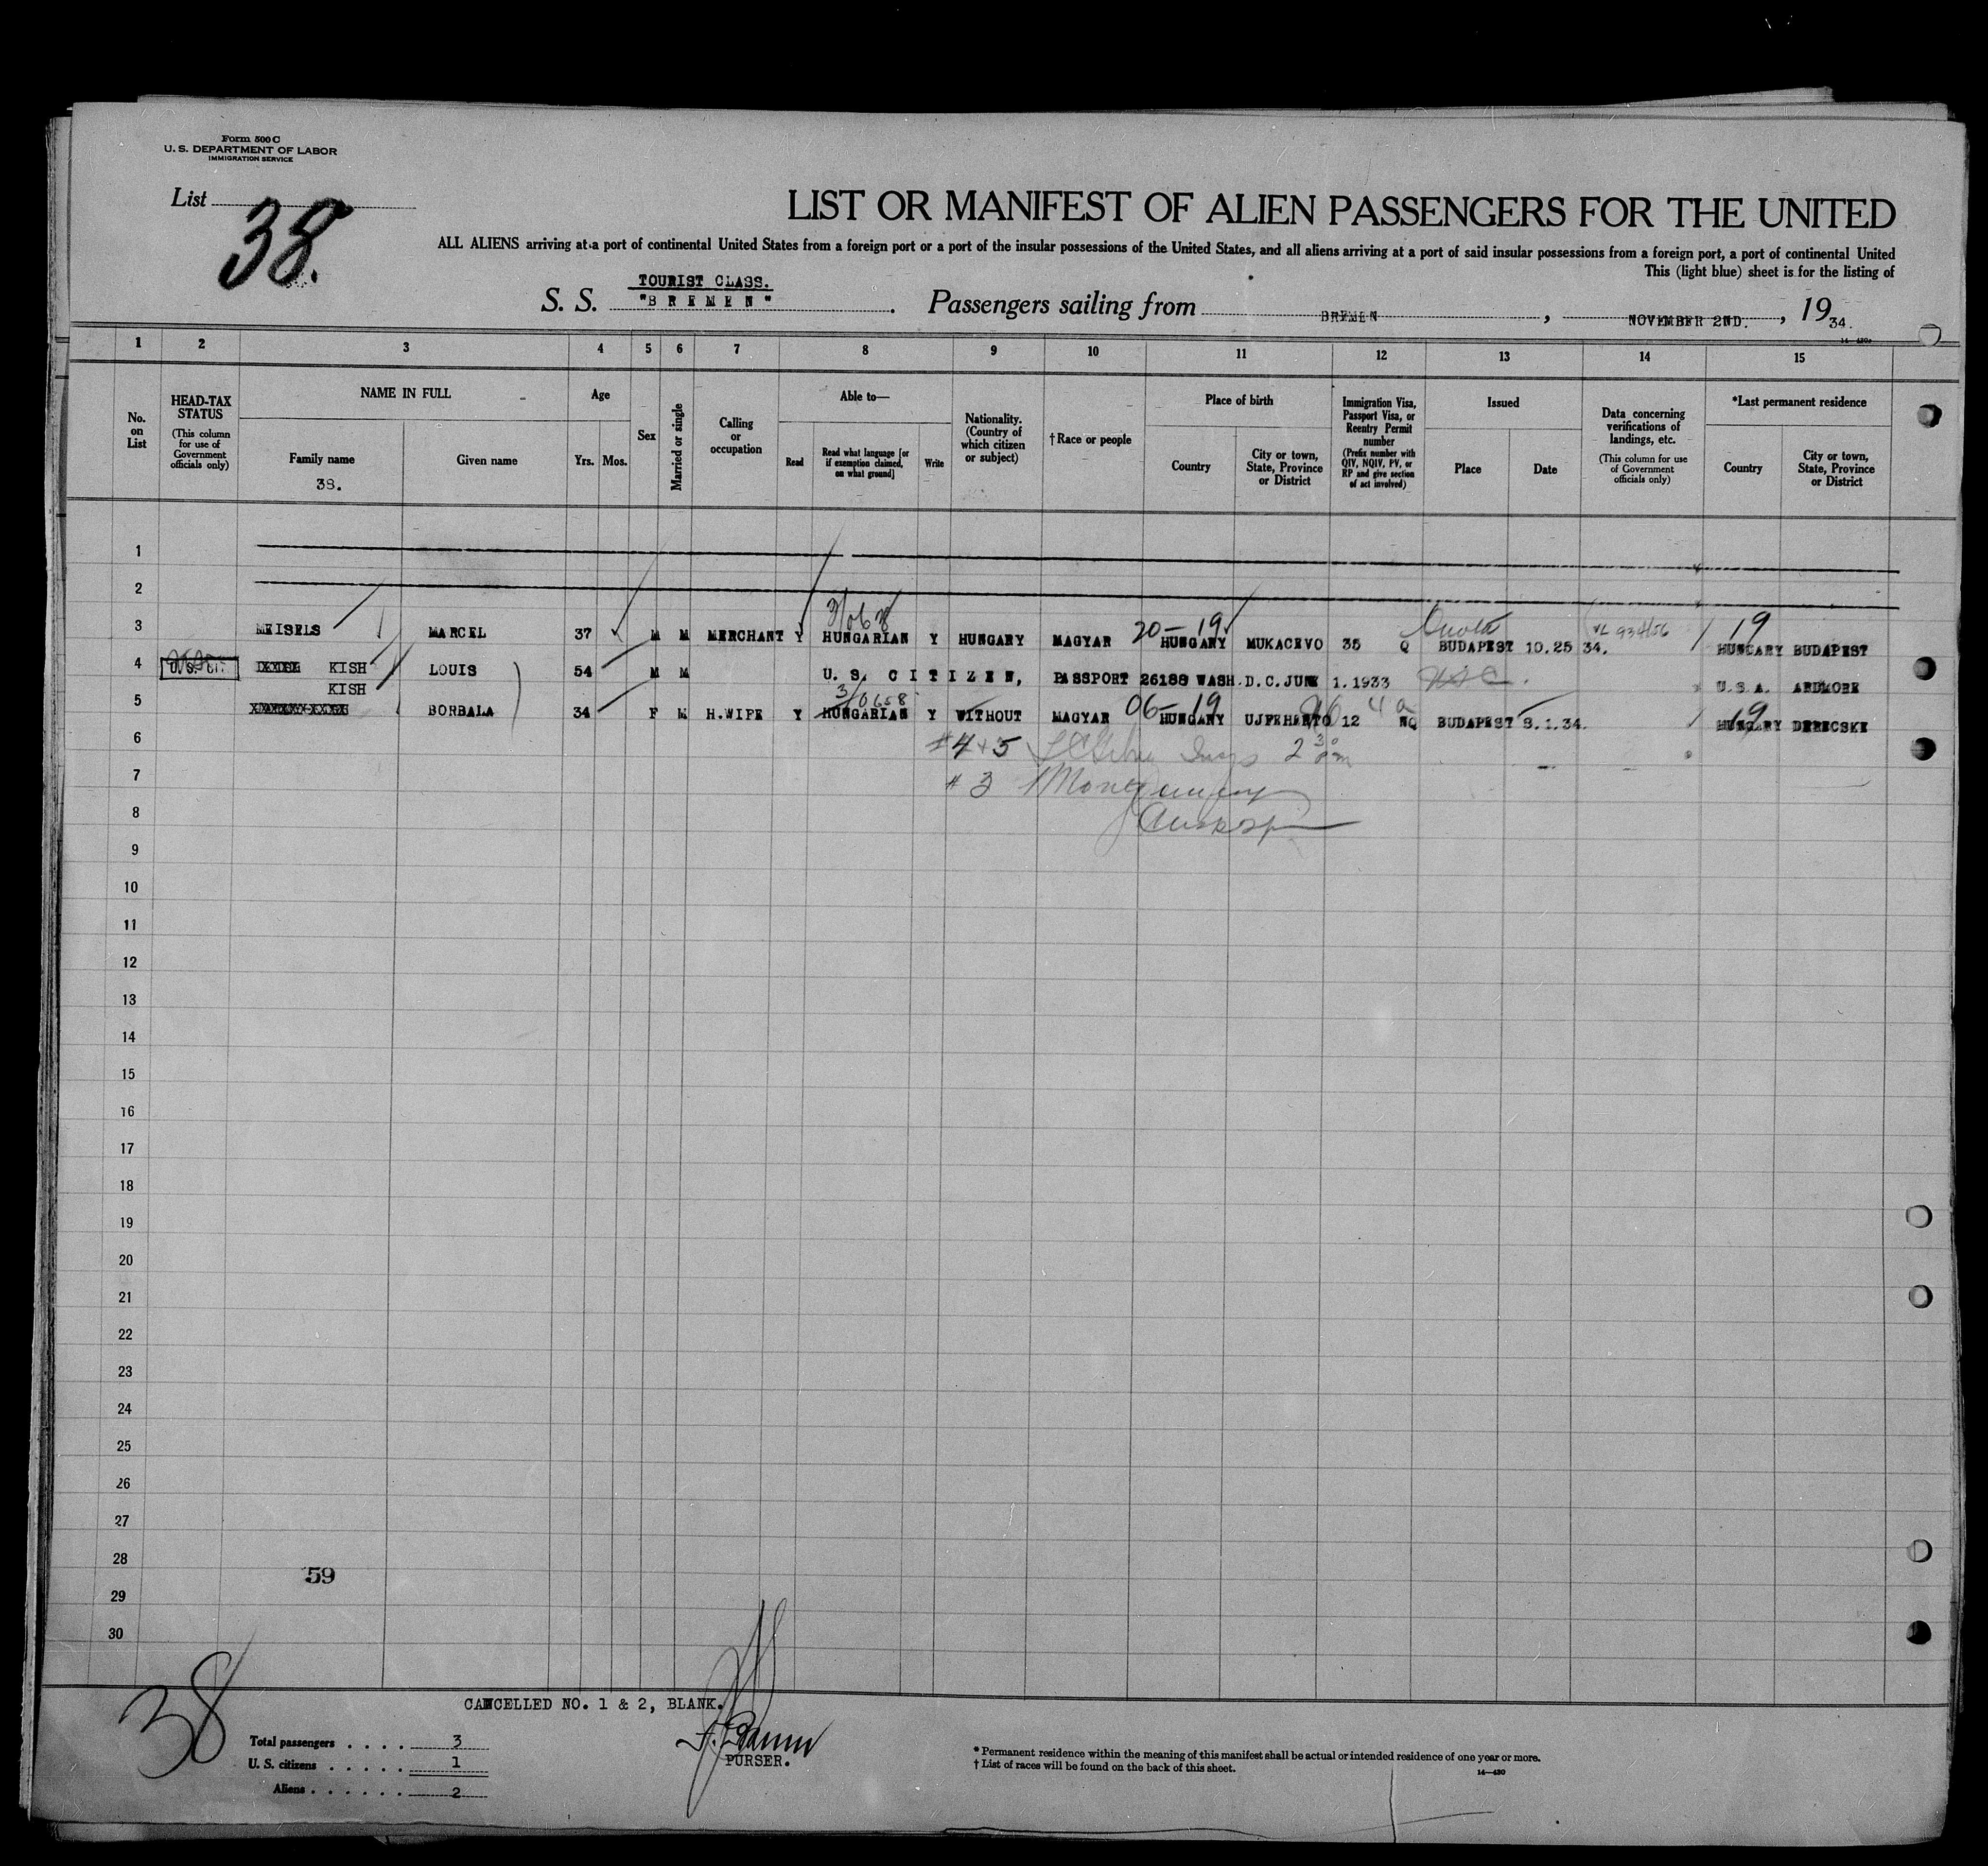 Form 500 C
U. S. DEPARTMENT OF LABOR
IMMIGRATION SERVICE
List
38.
LIST OR MANIFEST OF ALIEN PASSENGERS FOR THE UNITED
ALL ALIENS arriving at a port of continental United States from a foreign port or a port of the insular possessions of the United States, and all aliens arriving at a port of said insular possessions from a foreign port, a port of continental United
This (light blue) sheet is for the listing of
TOURIST CLASS.
S. S. "BREMEN". Passengers sailing from BREMEN, NOVEMBER 2ND., 1934.
14—430
1 2 3 4 5 6 7 8 9 10 11 12 13 14 15
No. on List
HEAD-TAX STATUS
(This column for use of Government officials only)
NAME IN FULL
Family name
38.
Given name
Age
Yrs. Mos.
Sex
Married or single
Calling or occupation
Able to—
Read
Read what language [or if exemption claimed, on what ground]
Write
Nationality. (Country of which citizen or subject)
†Race or people
Place of birth
Country
City or town, State, Province or District
Immigration Visa, Passport Visa, or Reentry Permit number
(Prefix number with QIV, NQIV, PV, or RP and give section of act involved)
Issued
Place
Date
Data concerning verifications of landings, etc.
(This column for use of Government officials only)
*Last permanent residence
Country
City or town, State, Province or District
1
2
3/068 20—19 Quota 19
3 MEISELS MARCEL 37 M M MERCHANT Y HUNGARIAN Y HUNGARY MAGYAR HUNGARY MUKACEVO 35 Q BUDAPEST 10.25 34. HUNGARY BUDAPEST
4 U.S. KISH LOUIS 54 M M U. S. CITIZEN, PASSPORT 26188 WASH.D.C.JUNE 1.1933 U.S.A. ARDMORE
KISH
3/0658 06—19 4a 19
5 BORBALA 34 F M H.WIFE Y HUNGARIAN Y WITHOUT MAGYAR HUNGARY UJFEHERTO 12 NQ BUDAPEST 8.1.34. HUNGARY DERECSKE
6 #4+5 2 30 pm
7 #3 Montgomery
8
9
10
11
12
13
14
15
16
17
18
19
20
21
22
23
24
25
26
27
28
59
29
30
38
CANCELLED NO. 1 & 2, BLANK.
Total passengers . . . . 3
U. S. citizens . . . . . 1
Aliens . . . . . . 2
PURSER.
* Permanent residence within the meaning of this manifest shall be actual or intended residence of one year or more.
† List of races will be found on the back of this sheet.
14—430